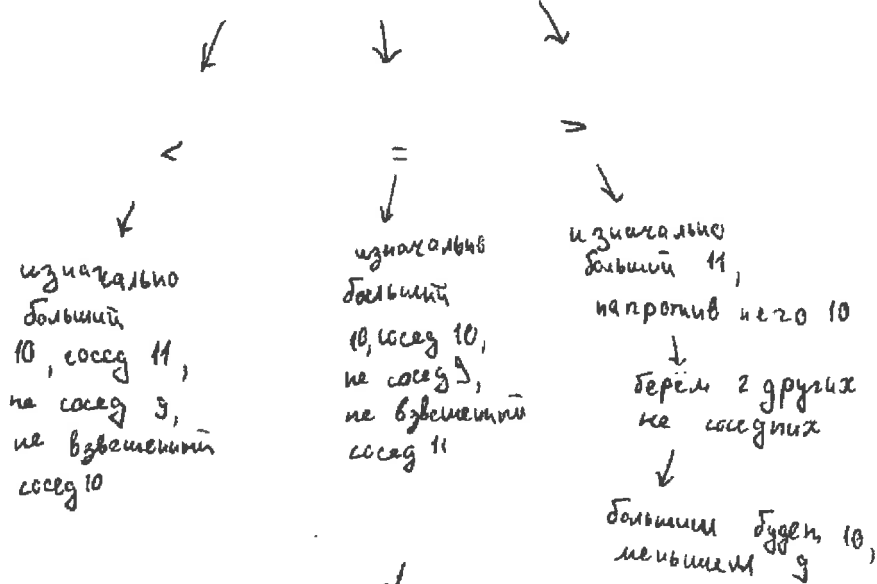 <
=
>
изначально
больший
10, сосед 11,
не сосед 9,
не взвешенный
сосед 10
изначально
больший
10, сосед 10,
не сосед 9,
не взвешенный
сосед 11
изначально
больший 11,
напротив него 10
берём 2 других
не соседних
большим будет 10,
меньшем 9